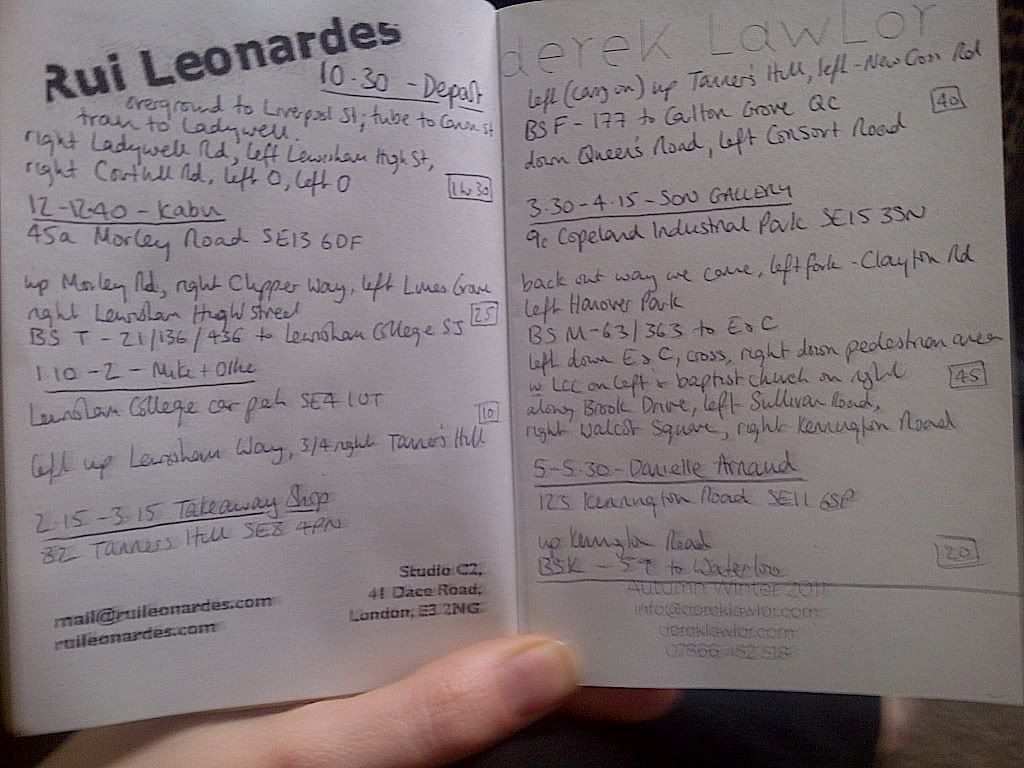 Rui Leonardes
10.30 - Depart
overground to Liverpool St; tube to Canon St
train to Ladywell.
right Ladywell Rd, left Lewisham High St,
right Courthill Rd, left O, left O
1h 30
12-12.40 - Kabu
45a Morley Road SE13 6DF
up Morley Rd, right Clipper Way, left Limes Grove
right Lewisham High Street
25
BS T - 21/136/436 to Lewisham College SJ
1.10-2 - Mike + Ollie
Lewisham College car park SE4 1UT
10
left up Lewisham Way, 3/4 right Tanner's Hill
2.15-3.15 Takeaway Shop
32 Tanners Hill SE8 4PN
Studio C2,
41 Dace Road,
London, E3 2NG
mail@ruileonardes.com
ruileonardes.com
derek Lawlor
left (carry on) up Tanner's Hill, left - New Cross Rd
40
BS F - 177 to Carlton Grove QC
down Queen's Road, left Consort Road
3.30-4.15 - SON GALLERY
9c Copeland Industrial Park SE15 3SN
back out way we came, left fork - Clayton Rd
left Hanover Park
BS M - 63/363 to E&C
left down E&C, cross, right down pedestrian area
w LCC on left + baptist church on right
45
along Brook Drive, left Sullivan Road,
right Walcot Square, right Kennington Road
5-5.30 - Danielle Arnaud
123 Kennington Road SE11 6SF
up Kennington Road
20
BSK - 59 to Waterloo
Autumn Winter 2011
info@dereklawlor.com
dereklawlor.com
07866 452 518